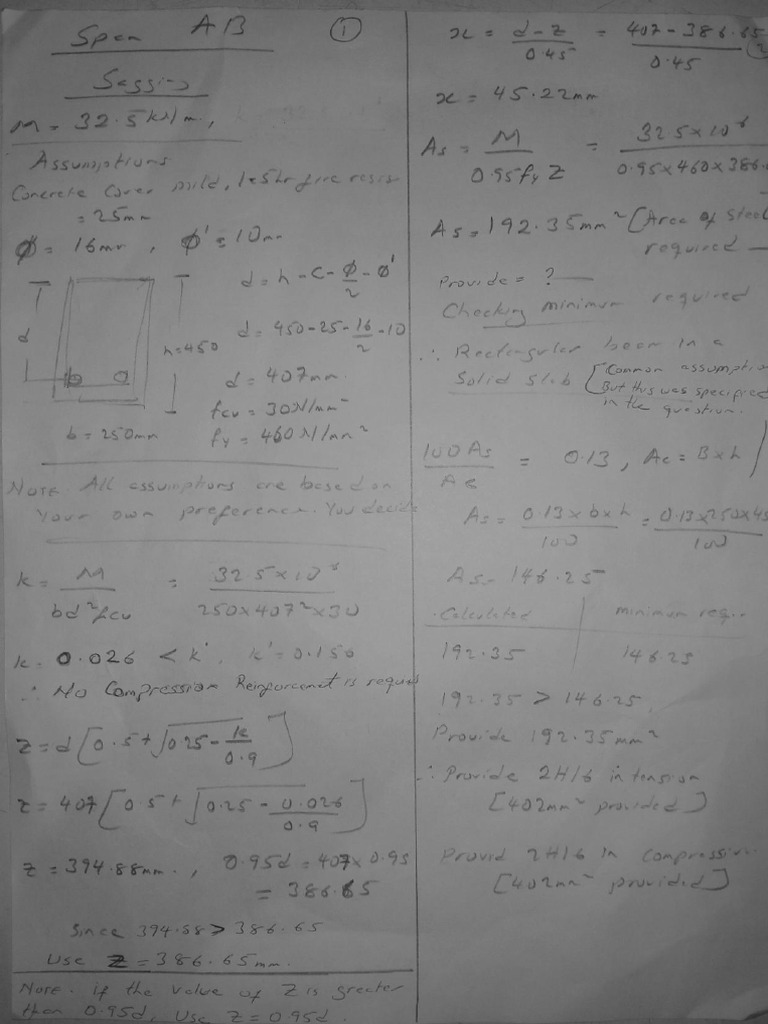 Span AB ①
Sagging
M = 32.5 kN/m,
Assumptions
Concrete Cover mild, 1.5hr fire resis
= 25mm
ϕ = 16mm, ϕ' = 10mm
d = h - c - ϕ/2 - ϕ'
d
h=450
d = 450-25-16/2-10
d = 407mm.
fcu = 30N/mm²
b = 250mm
fy = 460N/mm²
NOTE. All assumptions are based on
Your own preference. You decide
k = M/bd²fcu = 32.5x10⁶/250x407²x30
k = 0.026 < k', k' = 0.156
∴ No Compression Reinforcement is requi
z = d[0.5+√0.25-k/0.9]
z = 407[0.5+√0.25-0.026/0.9]
z = 394.88mm., 0.95d = 407x0.95
= 386.65
Since 394.88 > 386.65
Use z = 386.65mm.
NOTE. if the value of z is greater
than 0.95d, Use z = 0.95d.
x = d-z/0.45 = 407-386.65/0.45
②
x = 45.22mm
As = M/0.95fyz = 32.5x10⁶/0.95x460x386.
As = 192.35mm² [Area of steel
required
Provide = ?
Checking minimum required
∴ Rectangular beam in a
Solid slab [Common assumptio
But this was specified
in the question.
100As/Ac = 0.13, Ac = Bxh
As = 0.13xbxh/100 = 0.13x250x45/100
As = 146.25
Calculated minimum req..
192.35 146.25
192.35 > 146.25,
Provide 192.35mm²
∴ Provide 2H16 in tension
[402mm² provided]
Provid 2H16 in compressi
[402mm² provided]